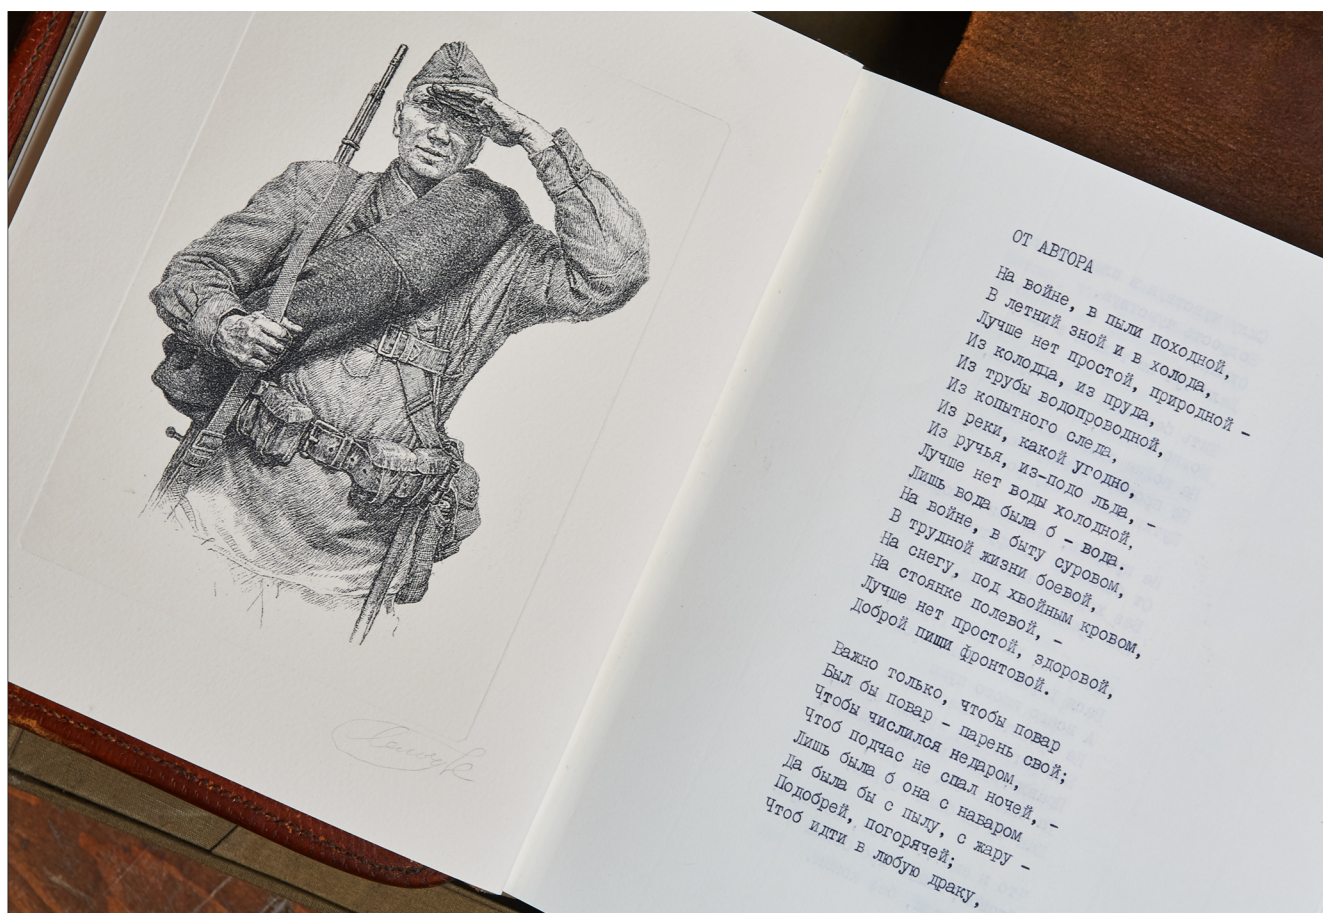 ОТ АВТОРА
На войне, в пыли походной,
В летний зной и в холода,
Лучше нет простой, природной –
Из колодца, из пруда,
Из трубы водопроводной,
Из копытного следа,
Из реки, какой угодно,
Из ручья, из-подо льда, –
Лучше нет воды холодной,
Лишь вода была б – вода.
На войне, в быту суровом,
В трудной жизни боевой,
На снегу, под хвойным кровом,
На стоянке полевой, –
Лучше нет простой, здоровой,
Доброй пищи фронтовой.
Важно только, чтобы повар
Был бы повар – парень свой;
Чтобы числился недаром,
Чтоб подчас не спал ночей, –
Лишь была б она с наваром
Да была бы с пылу, с жару –
Подобрей, погорячей;
Чтоб идти в любую драку,